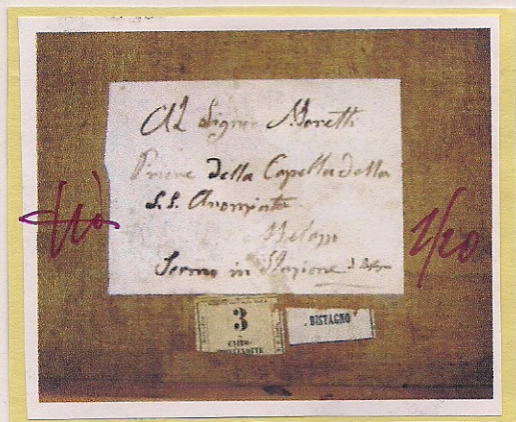 Al Signor Moretti
Priore della Capella della
S.S. Anonziata
Fermo in Stazione
3
CAIRO-
BISTAGNO
1/20